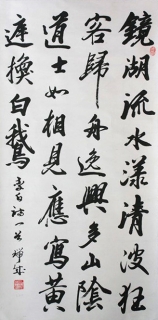 鏡湖流水漾清波狂
客歸舟逸興多山陰
道士如相見應寫黃
庭換白鵝
李白詩一首